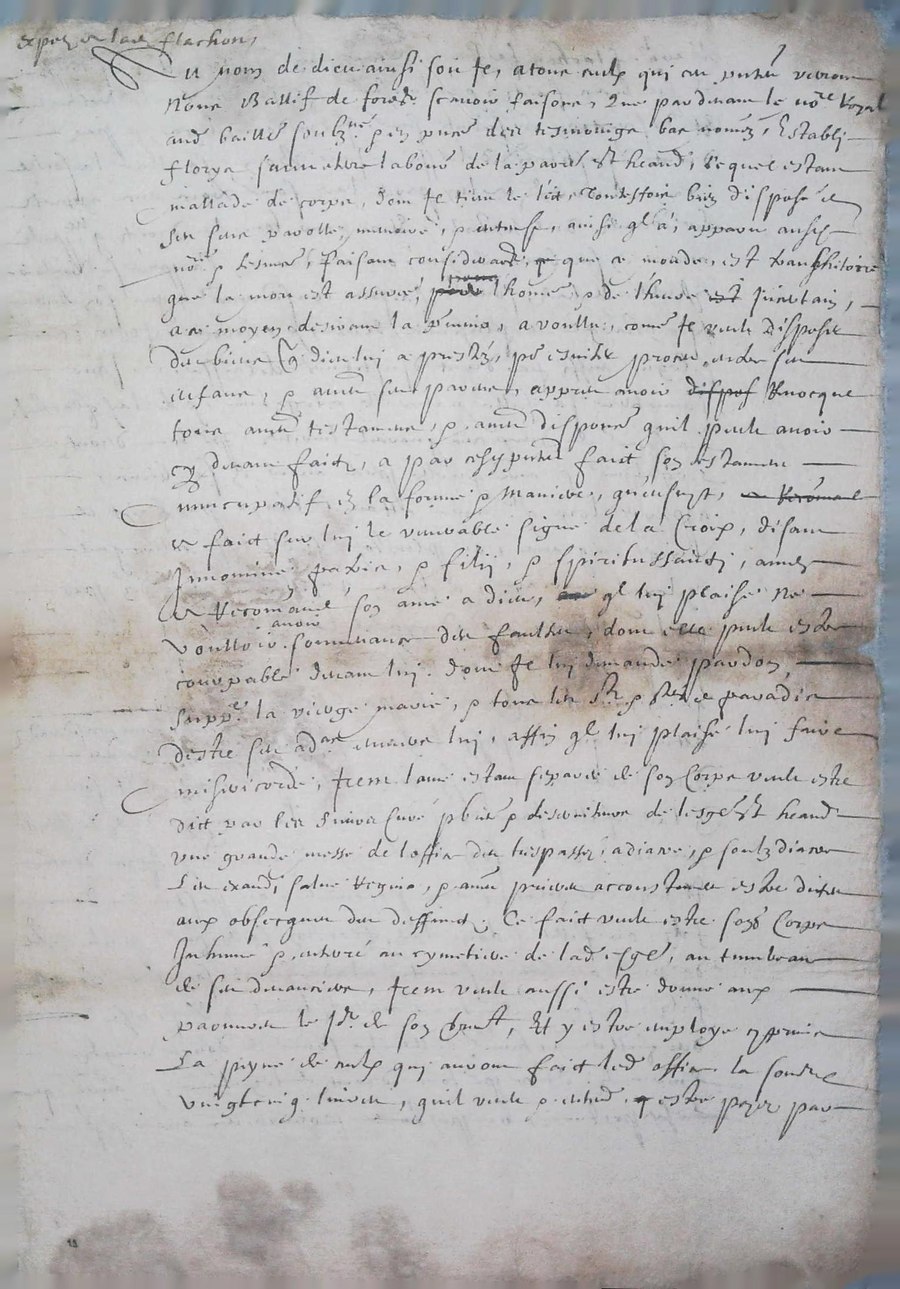 flachon
Au nom de dieu ainsi soit Je, a tous ceulx qui ces pntes verront
Nous Baillif de forestz scavoir faisons, Que par devant le no.re Royal
aud bailliage soubz.ne & en pnce des tesmoings bas nomez, Establi
labour de la parr.e st heand, lequel estant
mallade de corps, dont Je tient le lict, touttesfois bien dispose de
ses sens parolle, memoire, & entendt, ainsi ql a, apparu ausd
no.re & tesmoings, faisant considerant, que ce monde, est transhitoire
que la mort est assuree, a lhome, & de lheure Incertain,
a ce moyen desirant la prevenir, a voullu, come Je veult disposer
des biens q dieu lui a prestez, pr esviter proces entre ses
enfans, & aultres ses parens, appres avoir Revocque
tous aultres testamens, & aultres dispons quil peult avoir
cy devant faictz, a par cesd pntes faict son testament
nuncupatif en la forme & maniere, quensuyt,
a faict sur lui le venerable signe de la Croix, disant
Innomine patris, & filii, & spiritussancti, amen
Recomande son ame a dieu, ql lui plaise ne
voulloir avoir souvenance des faultes, dont elle peult estre
coulpable devant lui. dont Je lui demande pardon
Supp.e la vierge marie, & tous les S.tz & S.tes de paradis
destre ses ad.tes envers lui, affin ql lui plaise lui faire
misericorde, Item lame estant separee de son Corps veult estre
dict par les sieurs Cure pbres & desserviteurs de lesglise st heand
une grande messe de loffice des trespasses, a diacre, & soubzdiacre
Les exaudi, salve Regina, & aultres prieres accoustumees estre dictes
aux obsecques des deffunctz. Ce faict veult estre sond Corps
Inhume & enterre au cymetiere de lad esglise, au tumbeau
de ses devanciers, Item veult aussi estre donne aux
pauvres le Jr de son enterremt, Et y estre employe compris
La peyne de ceulx qui auront faict led office la somme
vingtcinq livres, quil veult & entend estre payes par